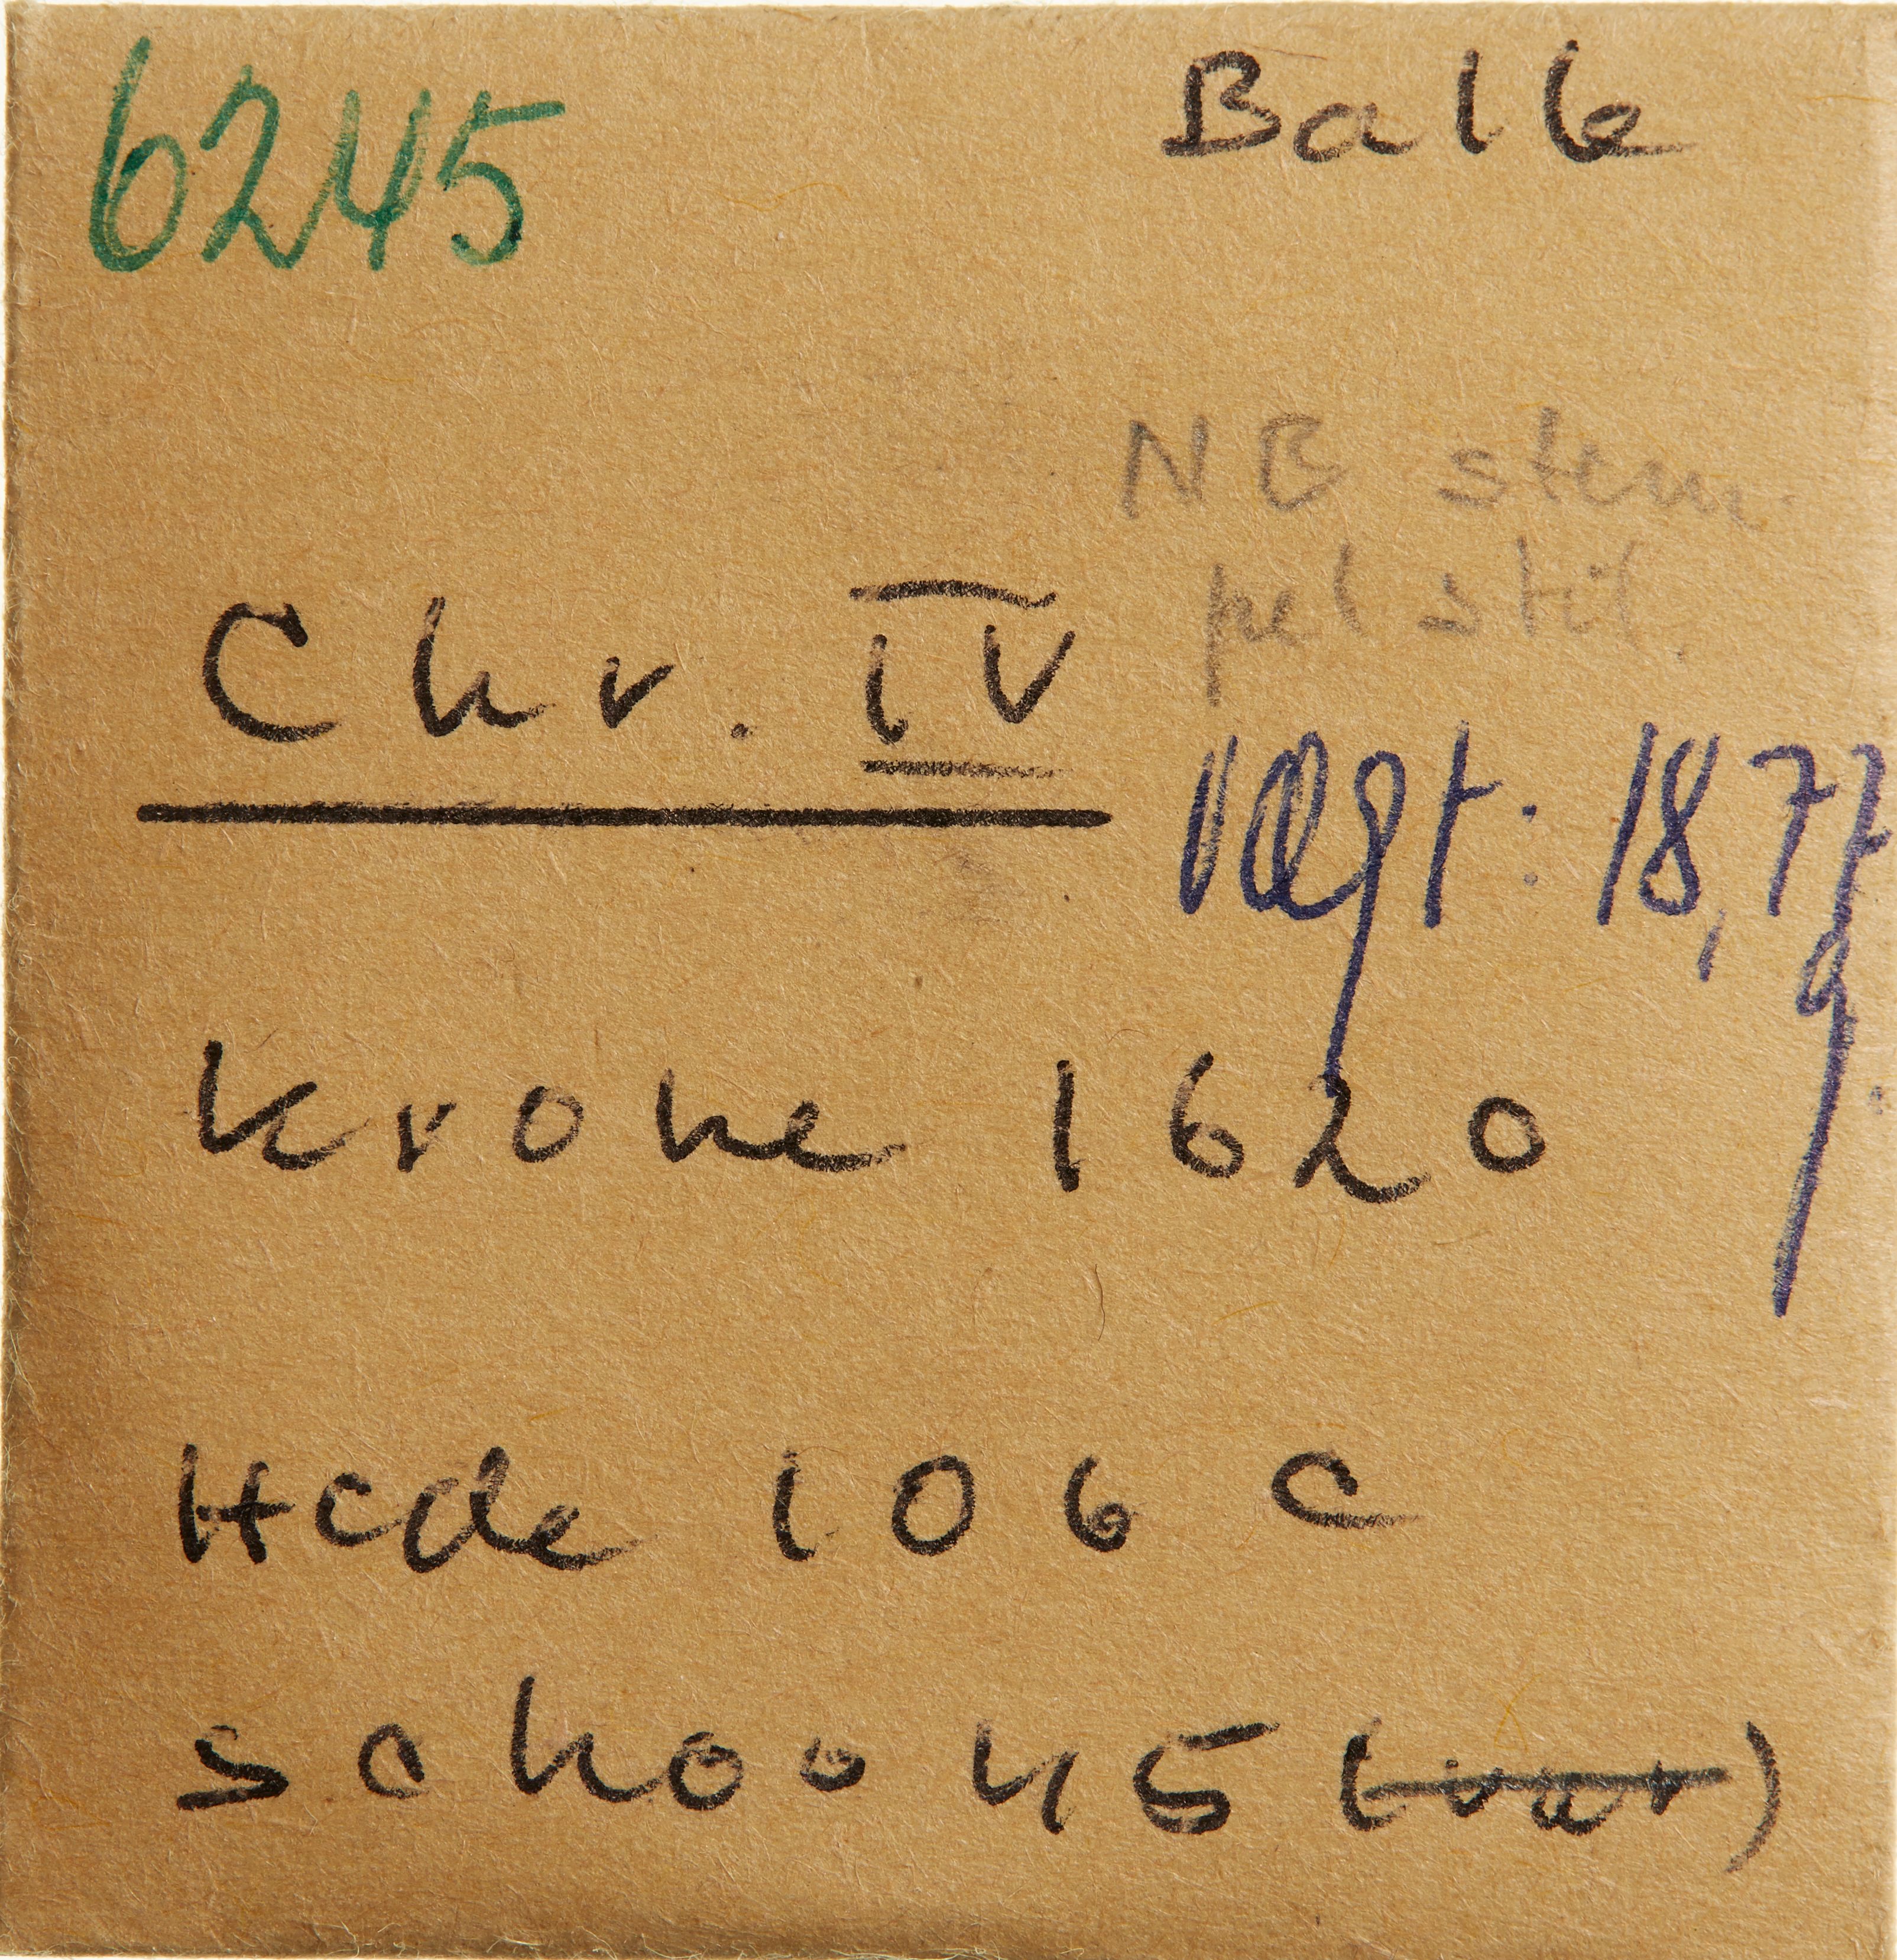 6245
Balle
NB stem
pelstil.
Chr. IV
vægt: 18,77
g.
Krone 1620
Hede 106 C
Schoo 45 (var)